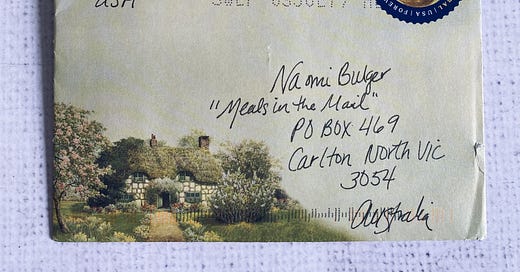 USA
Naomi Bulger
"Meals in the Mail"
PO BOX 469
Carlton North Vic
3054
Australia